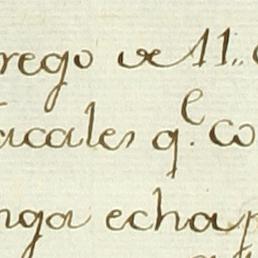 rego de 11..
acales q.e co
nga echa